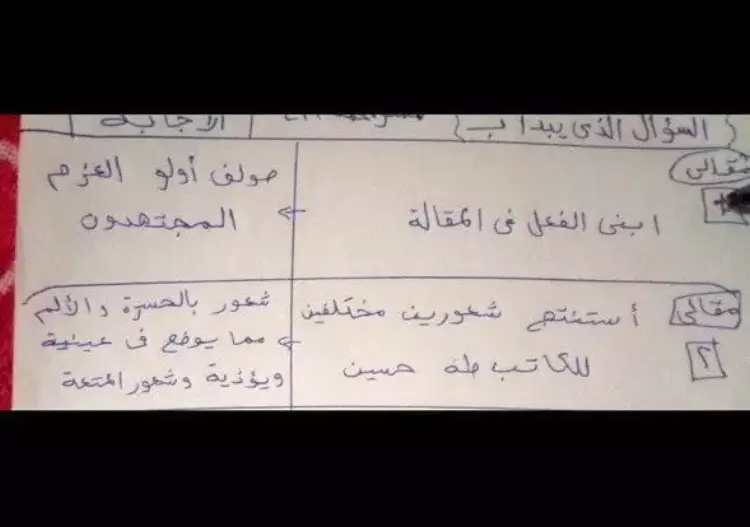 السؤال الذى يبدأ ب
الأجابة
مقالى
ابنى الفعل فى المقالة
صولف أولو العزم
المجتهدون
مقالى
٢
أستنتج شعورين مختلفين
للكاتب طه حسين
شعور بالحسرة والألم
مما يوضع فى عينية
ويؤذية وشعور المتعة